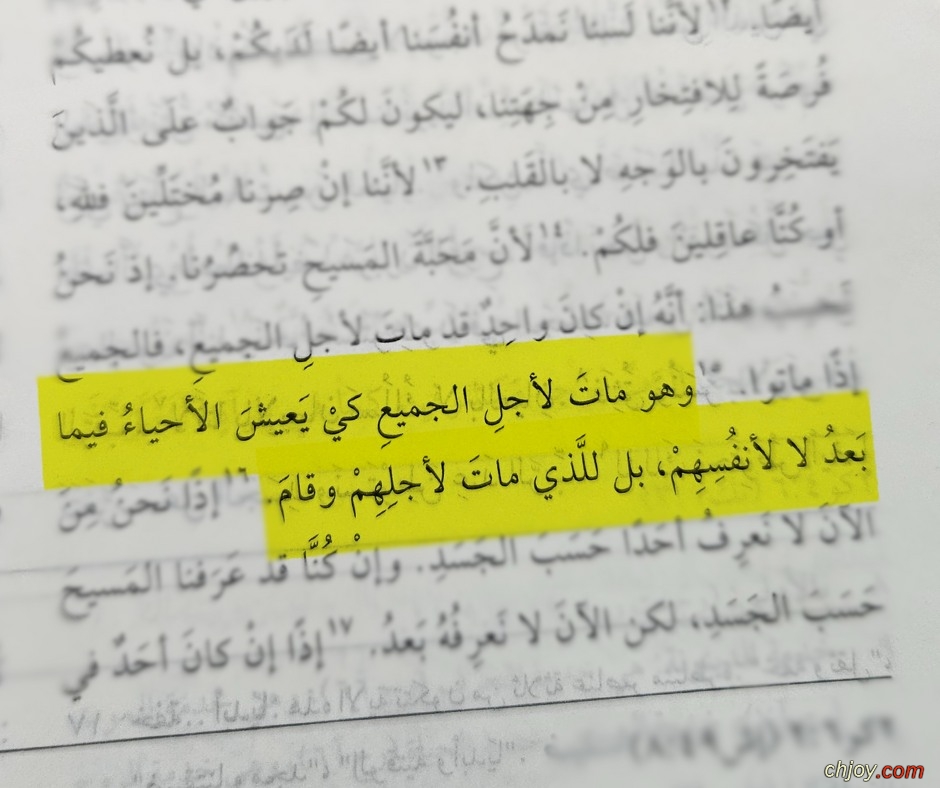 أيضًا. ١٢ لأنَّنا لَسنا نَمدَحُ أنفُسَنا أيضًا لَدَيكُمْ، بل نُعطيكُمْ
فُرصَةً لِلافتِخارِ مِنْ جِهَتِنا، ليكونَ لكُمْ جَوابٌ علَى الَّذينَ
يَفتَخِرونَ بالوَجهِ لا بالقَلبِ. ١٣ لأنَّنا إنْ صِرنا مُختَلّينَ فللهِ،
أو كُنَّا عاقِلينَ فلكُمْ. ١٤ لأنَّ مَحَبَّةَ المَسيحِ تَحصُرُنا. إذ نَحنُ
نَحسِبُ هذا: أنَّهُ إنْ كانَ واحِدٌ قد ماتَ لأجلِ الجميعِ، فالجميعُ
إذًا ماتوا. ١٥ وهو ماتَ لأجلِ الجميعِ كيْ يَعيشَ الأحياءُ فيما
بَعدُ لا لأنفُسِهِمْ، بل للَّذي ماتَ لأجلِهِمْ وقامَ. ١٦ إذًا نَحنُ مِنَ
الآنَ لا نَعرِفُ أحَدًا حَسَبَ الجَسَدِ. وإنْ كُنَّا قد عَرَفنا المَسيحَ
حَسَبَ الجَسَدِ، لكن الآنَ لا نَعرِفُهُ بَعدُ. ١٧ إذًا إنْ كانَ أحَدٌ في
chjoy.com